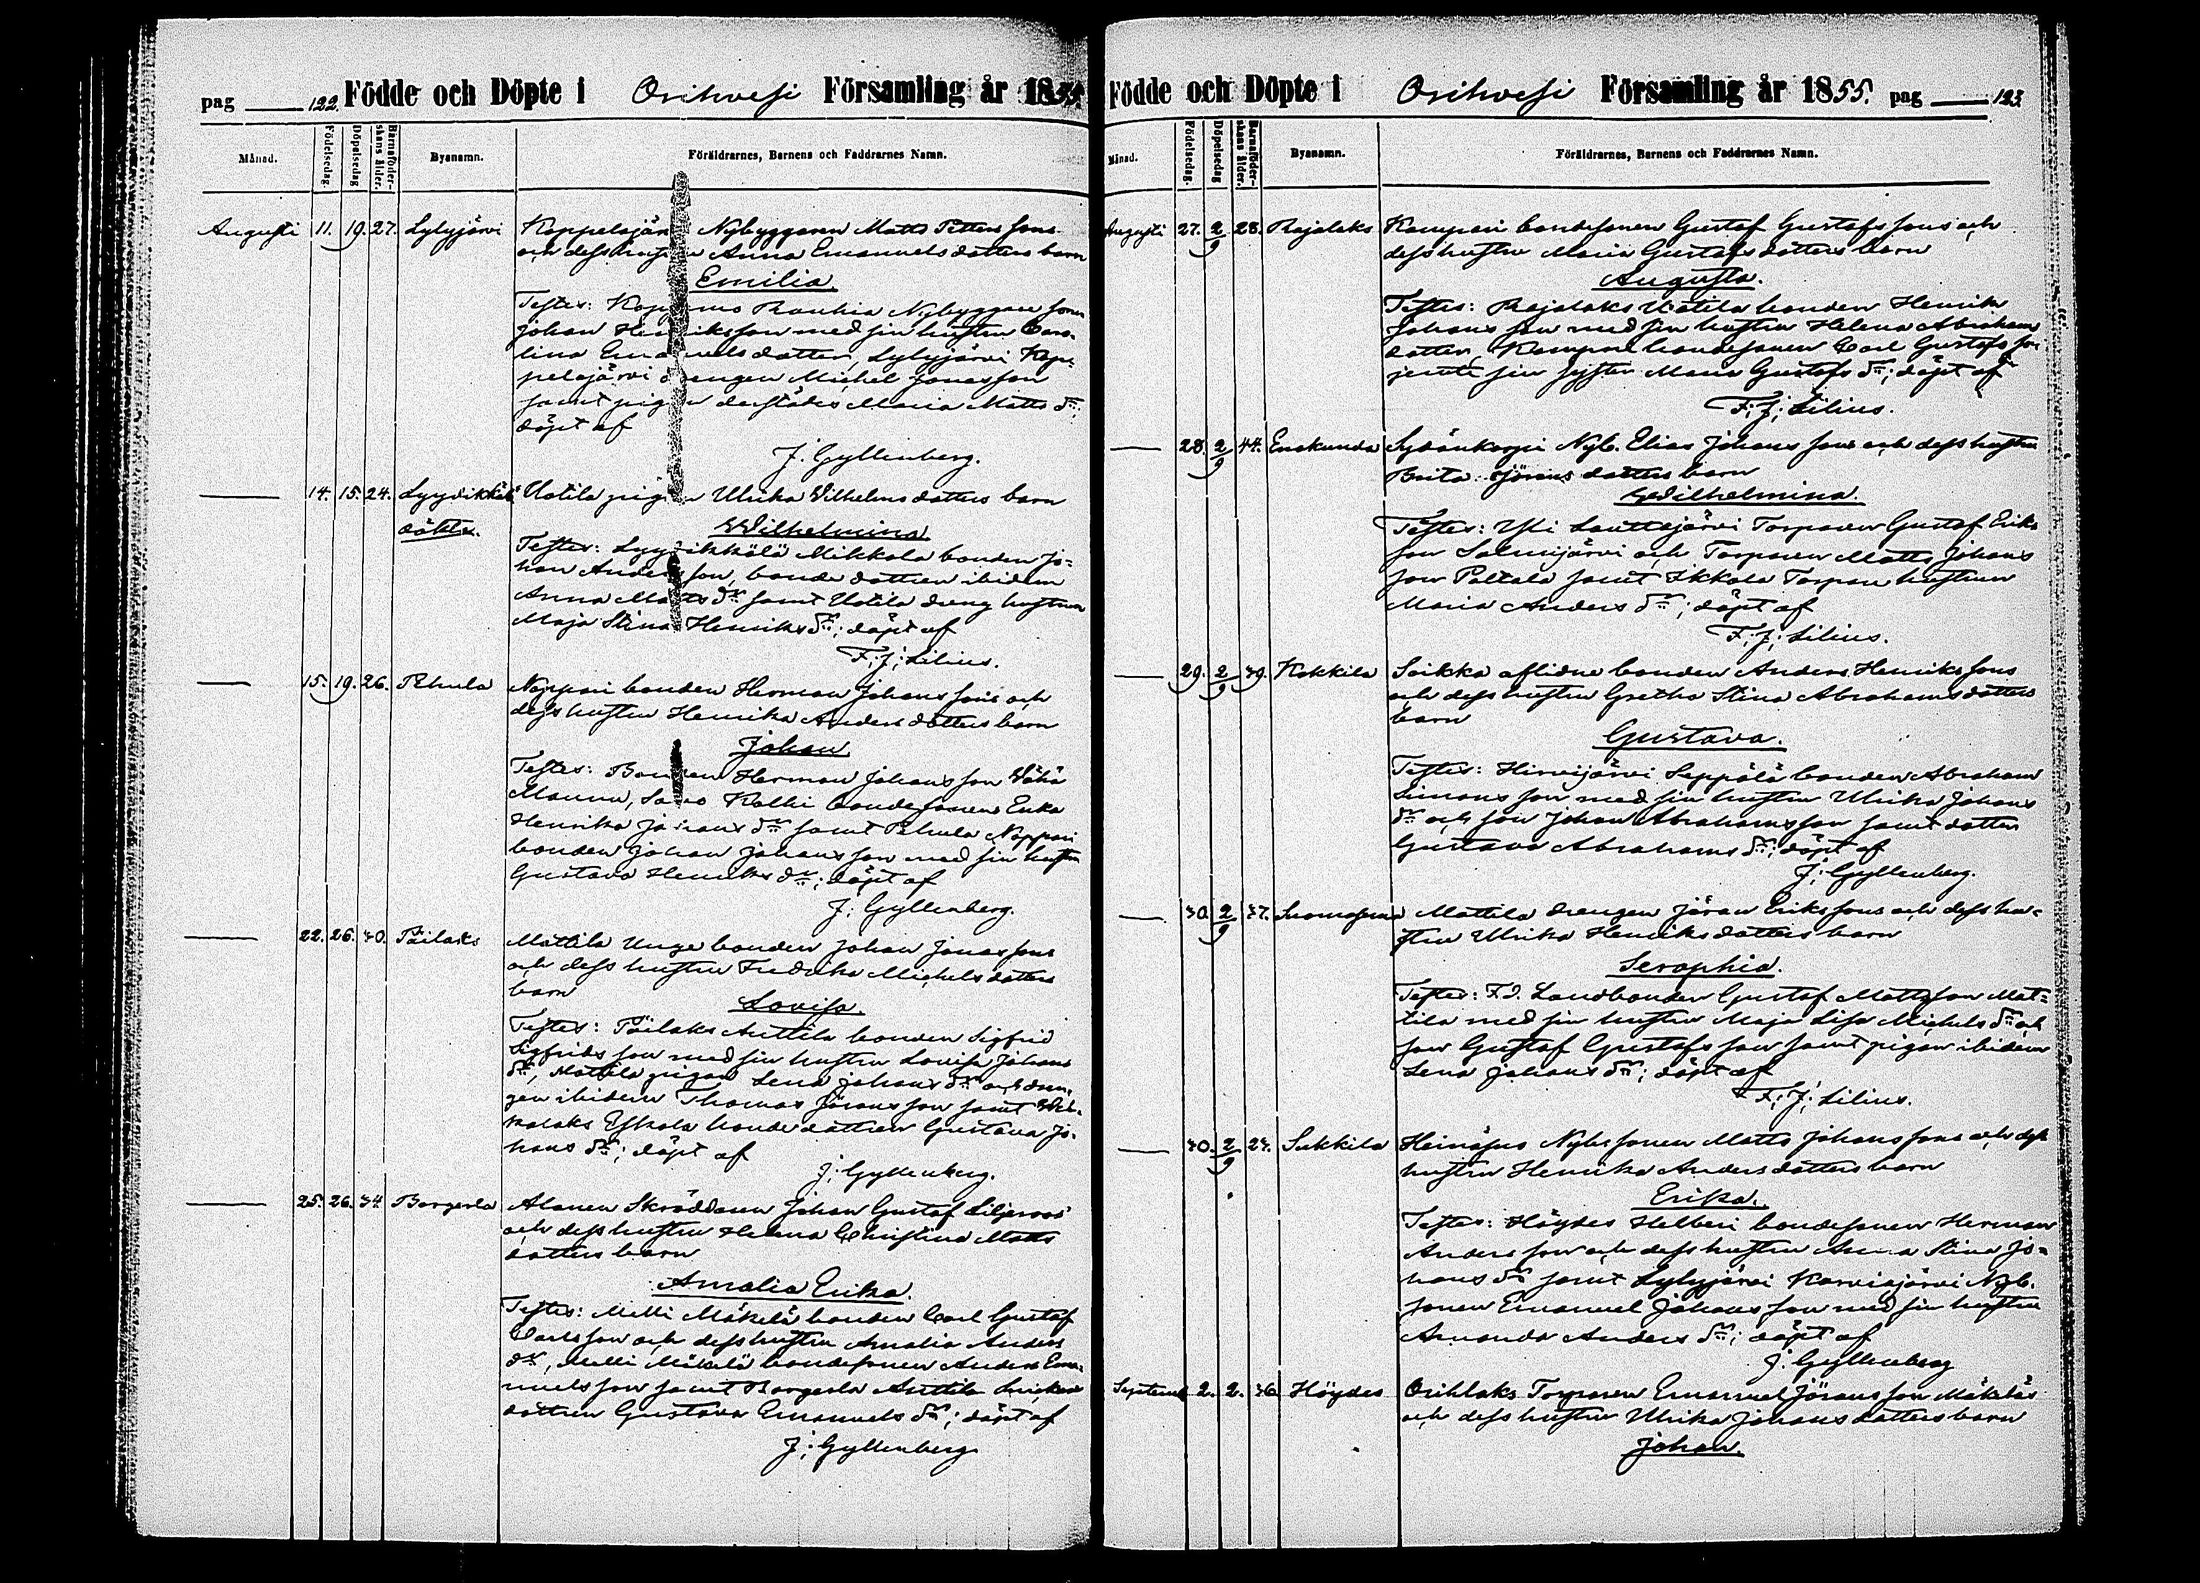 pag 122. Födde och Döpte i Orihvesi Församling år 1855.
Månad. Födelsedag. Döpelsedag Barnaföderskans ålder. Byanamn. Föräldrarnes, Barnens och Faddrarnes Namn.
Augusti 11. 19. 27. Lylyjärvi Koppelojärvi Nybyggaren Matts Petters sons
och dess hustru Anna Emanuels dotters barn
Emilia.
Testes: Rauhia Nybyggare sonen
Johan Henriksson med sin hustru Caro-
lina Emanuels dotter, Lylyjärvi Kop-
pelojärvi drengen Michel Jonasson
samt pigan derstädes Maria Matts dr;
döpt af
J. Gyllenberg.
14. 15. 24. Lyydikkälä Uotila pigan Ulrika Wilhelms dotters barn
oäkta.
Wilhelmina
Testes: Lyydikkälä Mikkola bonden Jo-
han Andersson, bonde dottren ibidem
Anna Matts dr samt Uotila dreng hustrun
Maja Stina Henriks dr; döpt af
F. J. Lilius.
15. 19. 26. Pehula Noppari bonden Herman Johans sons och
dess hustru Henrika Anders dotters barn
Johan.
Testes: Bonden Herman Johans son Vähä
Maunu, Kalli bondesonens Enka
Henrika Johans dr samt Pehula Noppari
bonden Johan Johans son med sin hustru
Gustava Henriks dr; döpt af
J. Gyllenberg.
22. 26. 30. Päilaks Mattila Unge bonden Johan Jonas sons
och dess hustru Fredrika Michels dotters
barn
Lovisa.
Testes: Päilaks Anttila bonden Sigfrid
Sigfrids son med sin hustru Lovisa Johans
dr, Mattila pigan Lena Johans dr och dren-
gen ibidem Thomas Jörans son samt
Eskola bonde dottren Gustava Jo-
hans dr; döpt af
J. Gyllenberg.
25. 26. 34. Bongerla Alanen Skräddaren Johan Gustaf Liljeroos
och dess hustru Helena Christina Matts
dotters barn
Amalia Erika.
Testes: Melli Mäkelä bonden Carl Gustaf
Carlsson och dess hustru Amalia Anders
dr, Melli Mäkelä bondesonen Anders Ema-
nuels son samt Bongerla Anttila
dottren Gustava Emanuels dr; döpt af
J. Gyllenberg
Födde och Döpte i Orihvesi Församling år 1855. pag 123.
Månad. Födelsedag. Döpelsedag Barnaföderskans ålder. Byanamn. Föräldrarnes, Barnens och Faddrarnes Namn.
Augusti 27. 2/9 28. Rajalaks Kampari bondesonen Gustaf Gustafs sons och
dess hustru Maria Gustafs dotters barn
Augusta.
Testes: Rajalaks Uotila bonden Henrik
Johans son med sin hustru Helena Abrahams
dotter, Kampari bondesonen Carl Gustafs son
jemte sin syster Maria Gustafs dr; döpt af
F. J. Lilius.
28. 2/9 44. Enokunda Nyb. Elias Johans sons och dess hustru
Brita Jörans dotters barn
Wilhelmina.
Testes: Lauttajärvi Torparen Gustaf Eriks
son Salmijärvi och Torparen Matts Johans
son Paltala samt Ikkala Torpare hustrun
Maria Anders dr; döpt af
F. J. Lilius.
29. 2/9 39. Kokkila Soikka aflidne bonden Anders Henriks sons
och dess hustru Gretha Stina Abrahams dotters
barn
Gustava.
Testes: Hirvijärvi Seppälä bonden Abraham
Simons son med sin hustru Ulrika Johans
dr och son Johan Abrahamsson samt dotter
Gustava Abrahams dr; döpt af
J. Gyllenberg.
30. 2/9 37. Suomasema Mattila drengen Jöran Eriks sons och dess hu-
stru Ulrika Henriks dotters barn
Seraphia.
Testes: F.d. Landbonden Gustaf Mattsson Mat-
tila med sin hustru Maja Lisa Michels dr och
son Gustaf Gustafs son samt pigan ibidem
Lena Johans dr; döpt af
F. J. Lilius.
30. 2/9 24. Sukkila Heinäsuo Nyb. sonen Matts Johans sons och dess
hustru Henrika Anders dotters barn
Erika.
Testes: Höydes Helberi bondesonen Herman
Anders son och dess hustru Anna Stina Jo-
hans dr samt Lylyjärvi Karviajärvi Nyb.
sonen Emanuel Johans son med sin hustru
Amanda Anders dr; döpt af
J. Gyllenberg
Septemb 2. 2. 36 Höydes Orihlaks Torparen Emanuel Jörans son Mäkeläs
och dess hustru Ulrika Johans dotters barn
Johan.